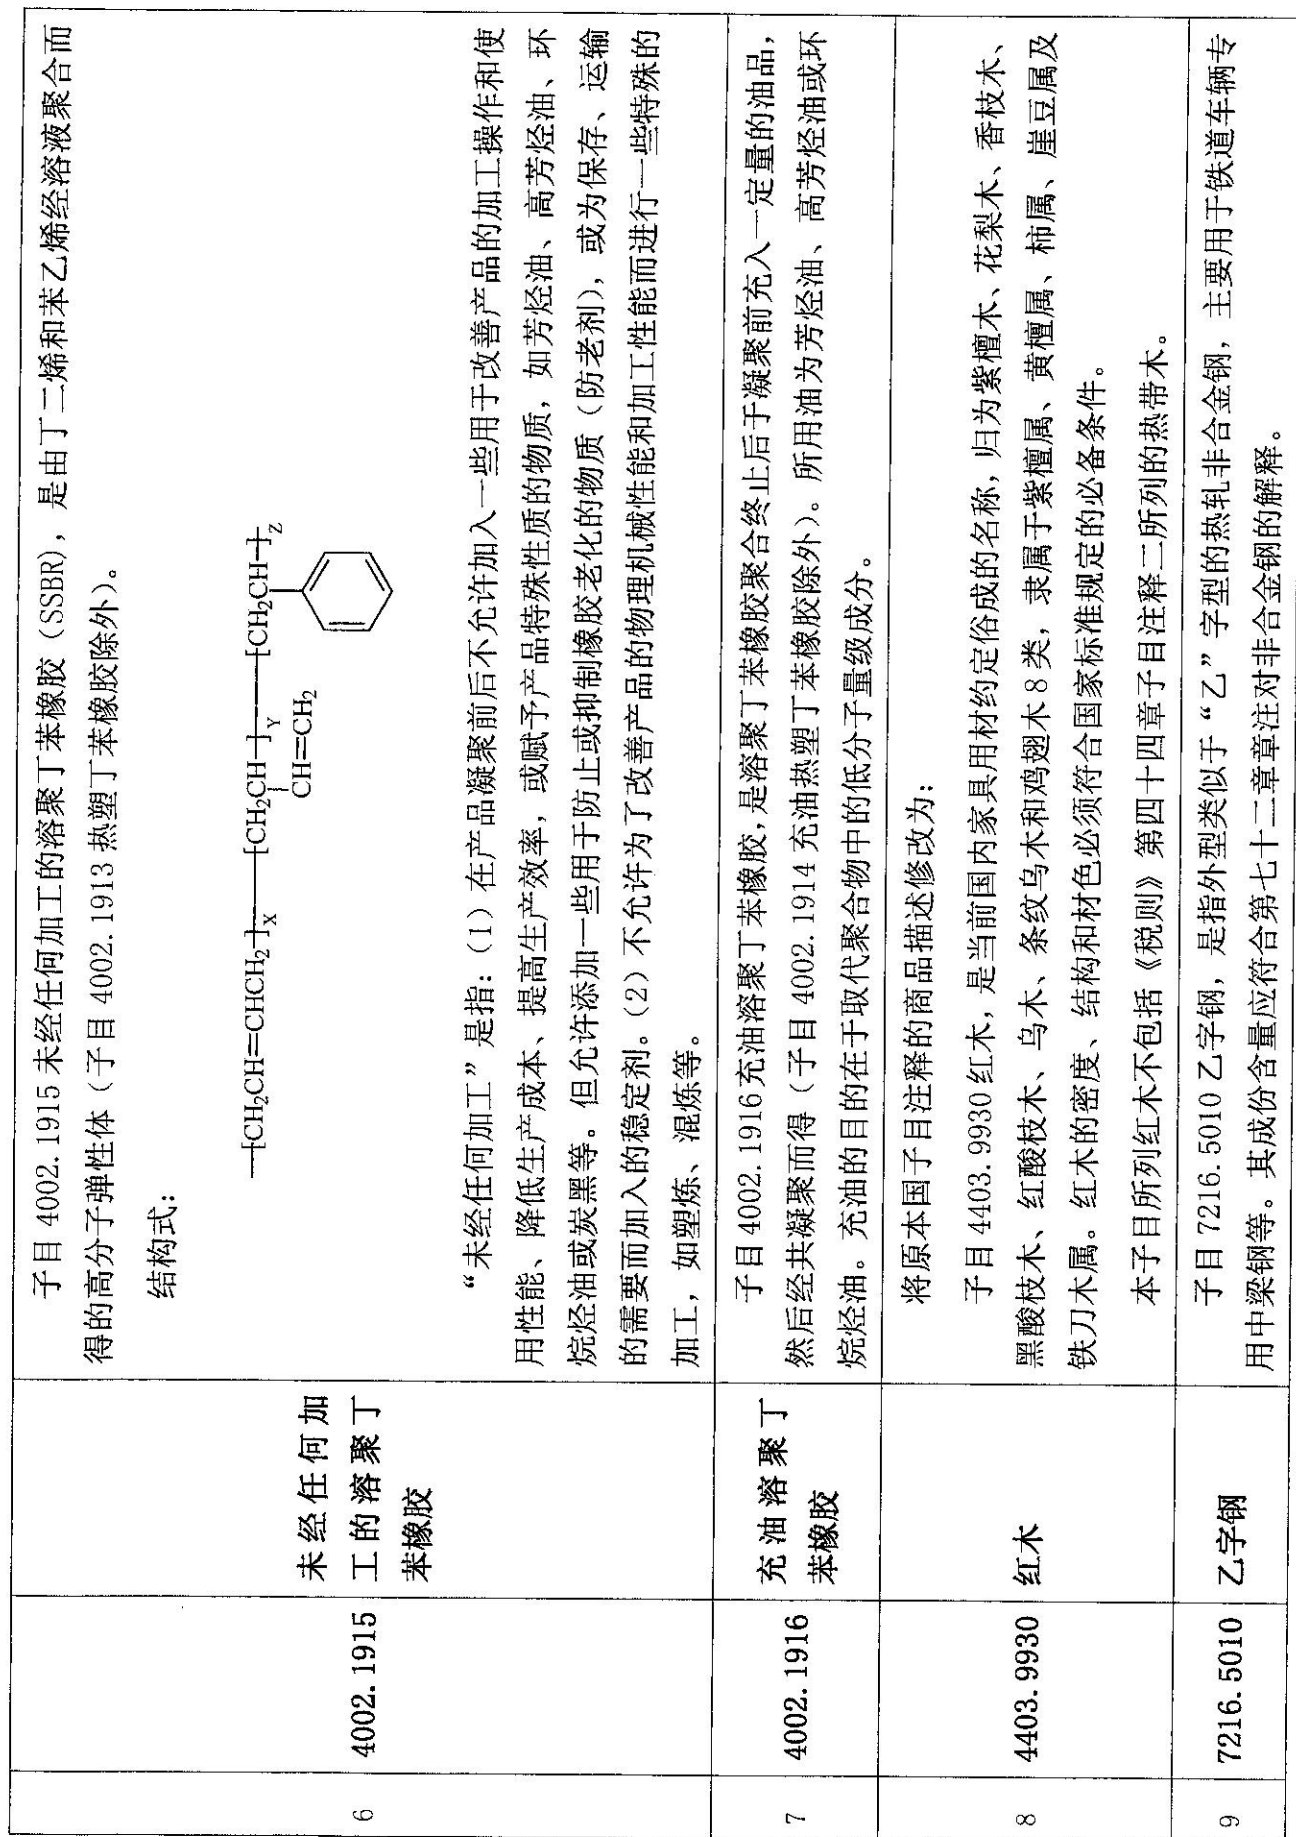 6
4002.1915
未经任何加
工的溶聚丁
苯橡胶
子目 4002.1915 未经任何加工的溶聚丁苯橡胶（SSBR），是由丁二烯和苯乙烯经溶液聚合而
得的高分子弹性体（子目 4002.1913 热塑丁苯橡胶除外）。
结构式：
—[CH₂CH=CHCH₂]X—[CH₂CH]Y—[CH₂CH]Z
CH=CH₂
“未经任何加工”是指：（1）在产品凝聚前后不允许加入一些用于改善产品的加工操作和使
用性能、降低生产成本、提高生产效率，或赋予产品特殊性质的物质，如芳烃油、高芳烃油、环
烷烃油或炭黑等。但允许添加一些用于防止或抑制橡胶老化的物质（防老剂），或为保存、运输
的需要而加入的稳定剂。（2）不允许为了改善产品的物理机械性能和加工性能而进行一些特殊的
加工，如塑炼、混炼等。
7
4002.1916
充油溶聚丁
苯橡胶
子目 4002.1916 充油溶聚丁苯橡胶，是溶聚丁苯橡胶聚合终止后于凝聚前充入一定量的油品，
然后经共凝聚而得（子目 4002.1914 充油热塑丁苯橡胶除外）。所用油为芳烃油、高芳烃油或环
烷烃油。充油的目的在于取代聚合物中的低分子量级成分。
8
4403.9930
红木
将原本国子目注释的商品描述修改为：
子目 4403.9930 红木，是当前国内家具用材约定俗成的名称，归为紫檀木、花梨木、香枝木、
黑酸枝木、红酸枝木、乌木、条纹乌木和鸡翅木 8 类，隶属于紫檀属、黄檀属、柿属、崖豆属及
铁刀木属。红木的密度、结构和材色必须符合国家标准规定的必备条件。
本子目所列红木不包括《税则》第四十四章子目注释二所列的热带木。
9
7216.5010
乙字钢
子目 7216.5010 乙字钢，是指外型类似于“乙”字型的热轧非合金钢，主要用于铁道车辆专
用中梁钢等。其成份含量应符合第七十二章章注对非合金钢的解释。